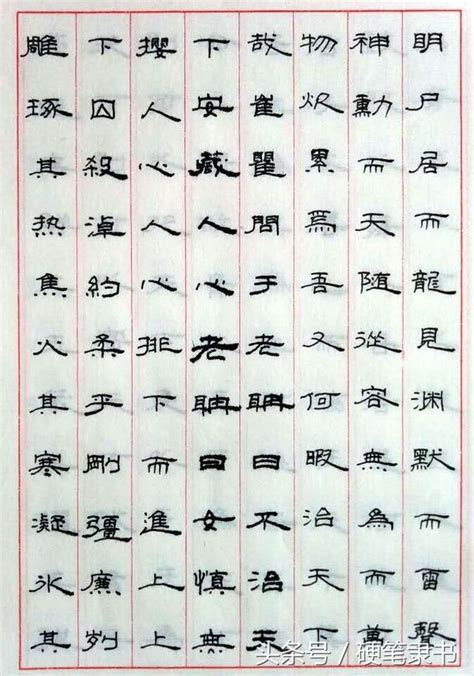 明尸居而龍見渊默而雷聲
神動而天随從容無為而萬
物炊累焉吾又何暇治天下
哉崔瞿問于老聃曰不治天
下安藏人心老聃曰女慎無
攖人心人心排下而進上上
下囚殺淖約柔乎剛彊廉刿
雕琢其热焦火其寒凝氷其
头条号/硬笔隶书